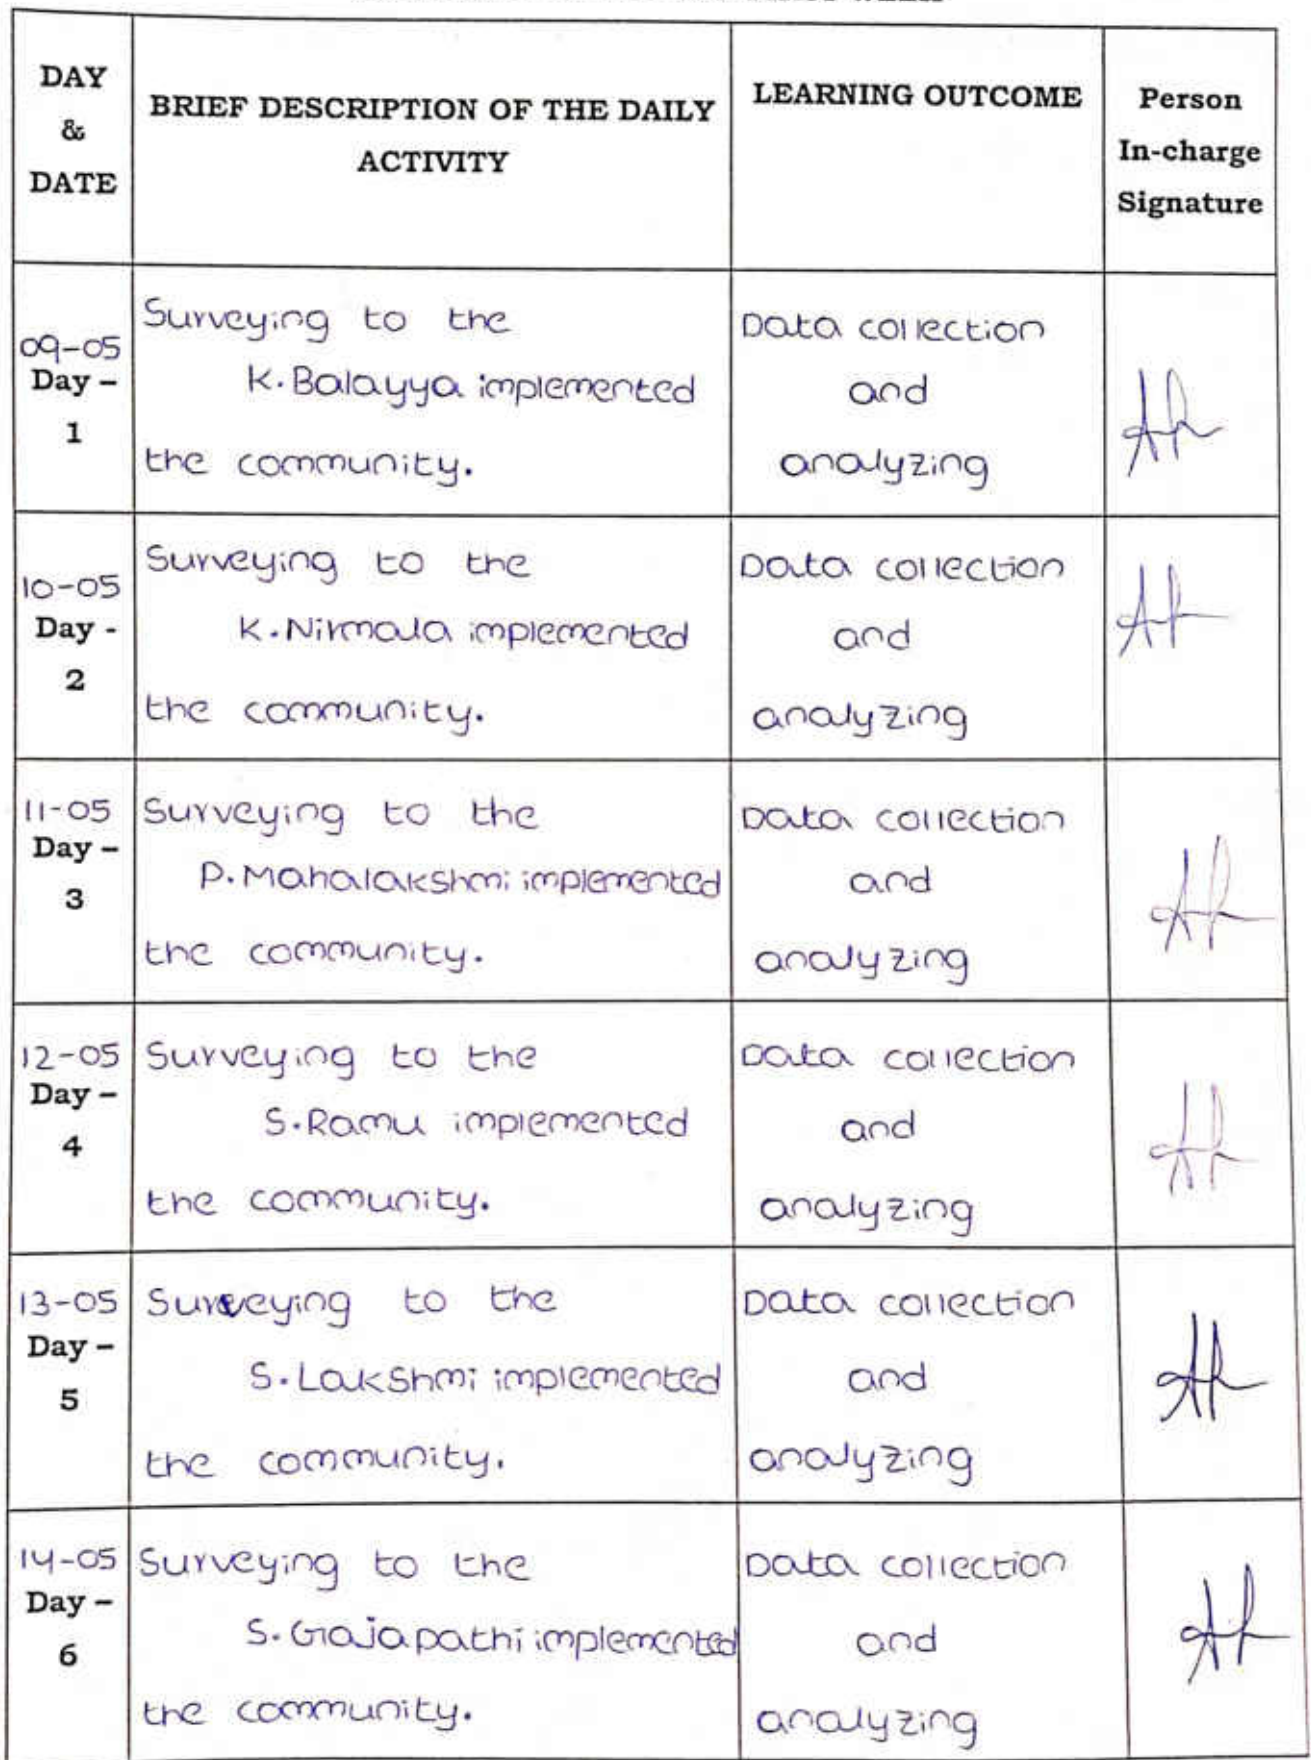 DAY
&
DATE
BRIEF DESCRIPTION OF THE DAILY
ACTIVITY
LEARNING OUTCOME
Person
In-charge
Signature
09-05
Day –
1
Surveying to the
K. Balayya implemented
the community.
Data collection
and
analyzing
10-05
Day -
2
Surveying to the
K. Nirmala implemented
the community.
Data collection
and
analyzing
11-05
Day –
3
Surveying to the
P. Mahalakshmi implemented
the community.
Data collection
and
analyzing
12-05
Day –
4
Surveying to the
S. Ramu implemented
the community.
Data collection
and
analyzing
13-05
Day –
5
Surveying to the
S. Lakshmi implemented
the community.
Data collection
and
analyzing
14-05
Day –
6
Surveying to the
S. Gajapathi implemented
the community.
Data collection
and
analyzing